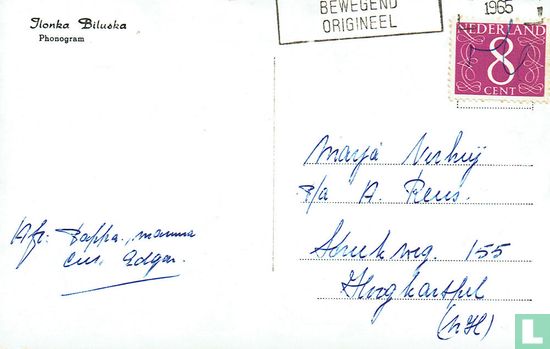 Ilonka Biluska
Phonogram
BEWEGEND
ORIGINEEL
1965
NEDERLAND
8
CENT
Marja Verhuij
p/a A. Reus.
Streekweg. 155
Hoogkarspel
(N.H)
Afz: Pappa, mamma
en Edgar.
catawiki